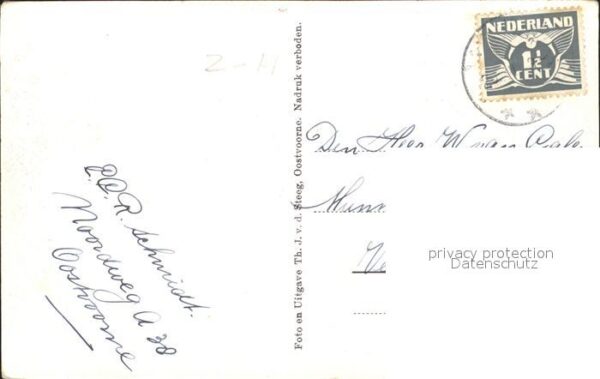 Z-H
NEDERLAND
1½
CENT
Foto en Uitgave Th. J. v. d. Steeg, Oostvoorne. Nadruk verboden.
Den Heer W van
privacy protection
Datenschutz
C.C.R. Schmidt.
Noordweg A 38
Oostvoorne